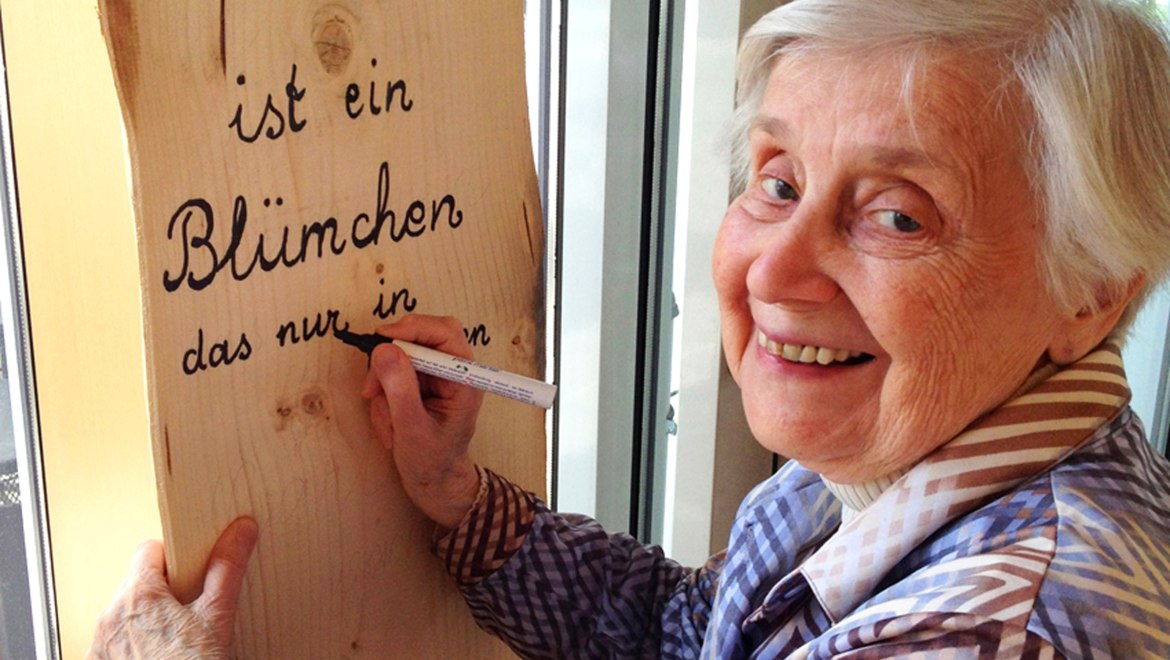 ist ein
Blümchen
das nur in